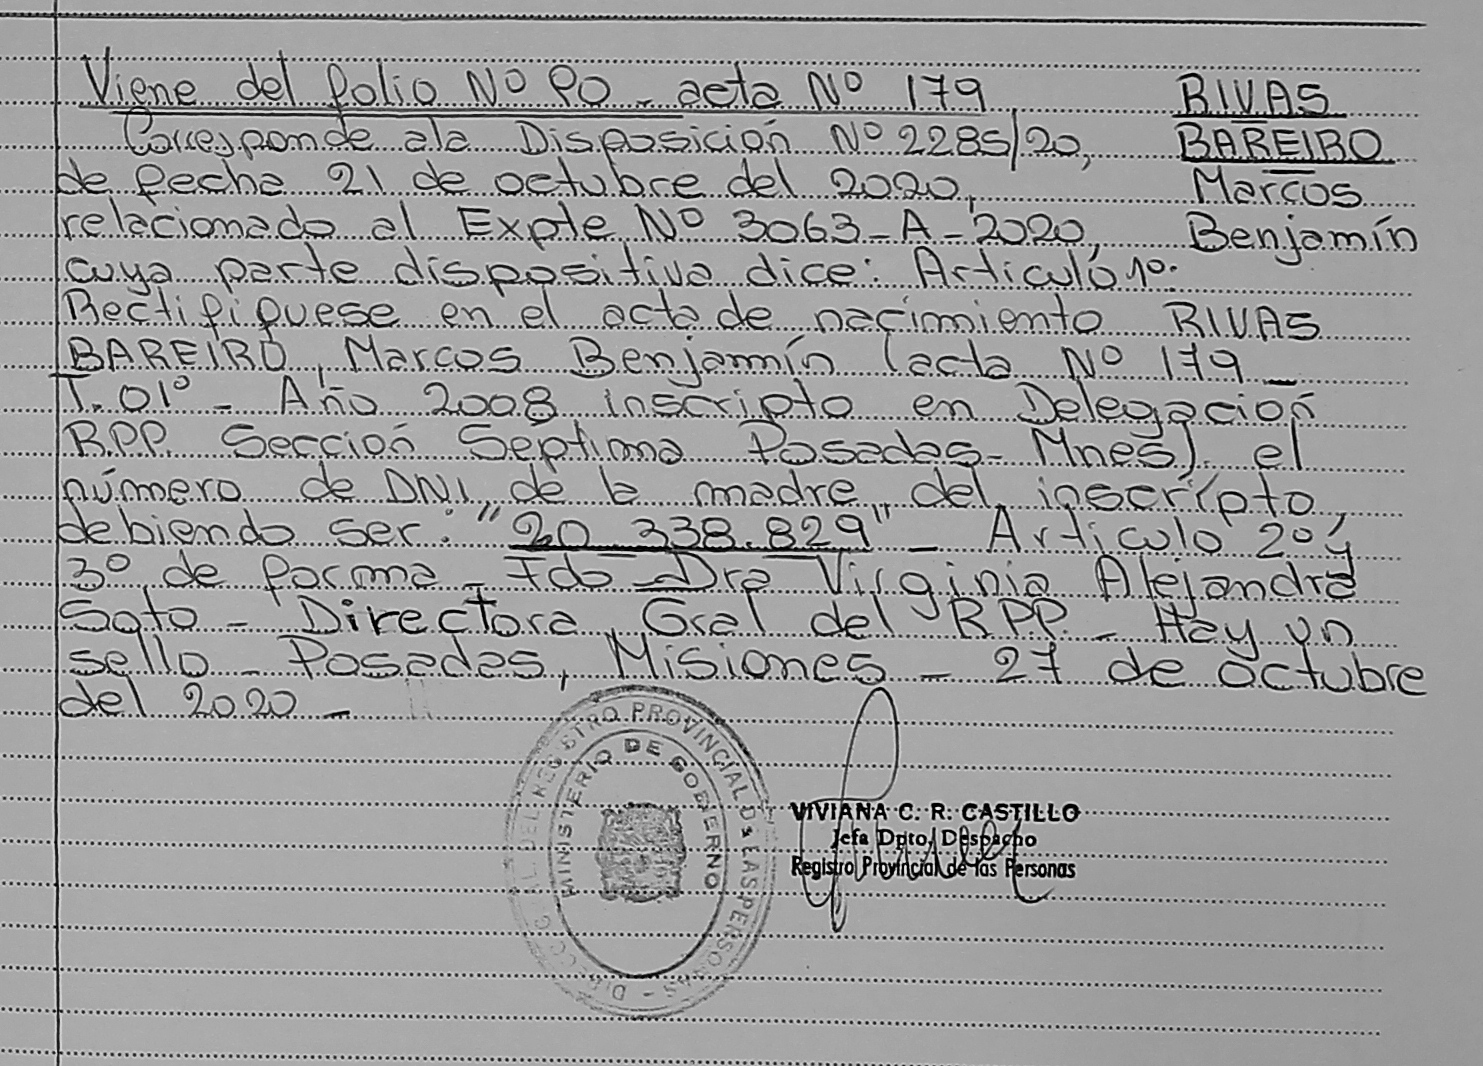 Viene del folio Nº 90 - acta Nº 179
RIVAS
BAREIRO
Marcos
Benjamín
Corresponde a la Disposición Nº 2285/20,
de fecha 21 de octubre del 2020,
relacionado al Expte Nº 3063-A-2020,
cuya parte dispositiva dice: Articuló 1º:
Rectifiquese en el acta de nacimiento RIVAS
BAREIRO, Marcos Benjamín (acta Nº 179 -
T. 01º - Año 2008 inscripto en Delegación
R.P.P. Sección Septima Posadas - Mnes) el
número de DNI, de la madre del inscripto,
debiendo ser: "20.338.829" - Articulo 2º y
3º de forma - Fdo Dra Virginia Alejandra
Soto - Directora Gral del RPP. - Hay un
sello - Posadas, Misiones - 27 de octubre
del 2020 -
REGISTRO PROVINCIAL DE LAS PERSONAS
MINISTERIO DE GOBIERNO
VIVIANA C. R. CASTILLO
Jefa Dpto. Despacho
Registro Provincial de las Personas